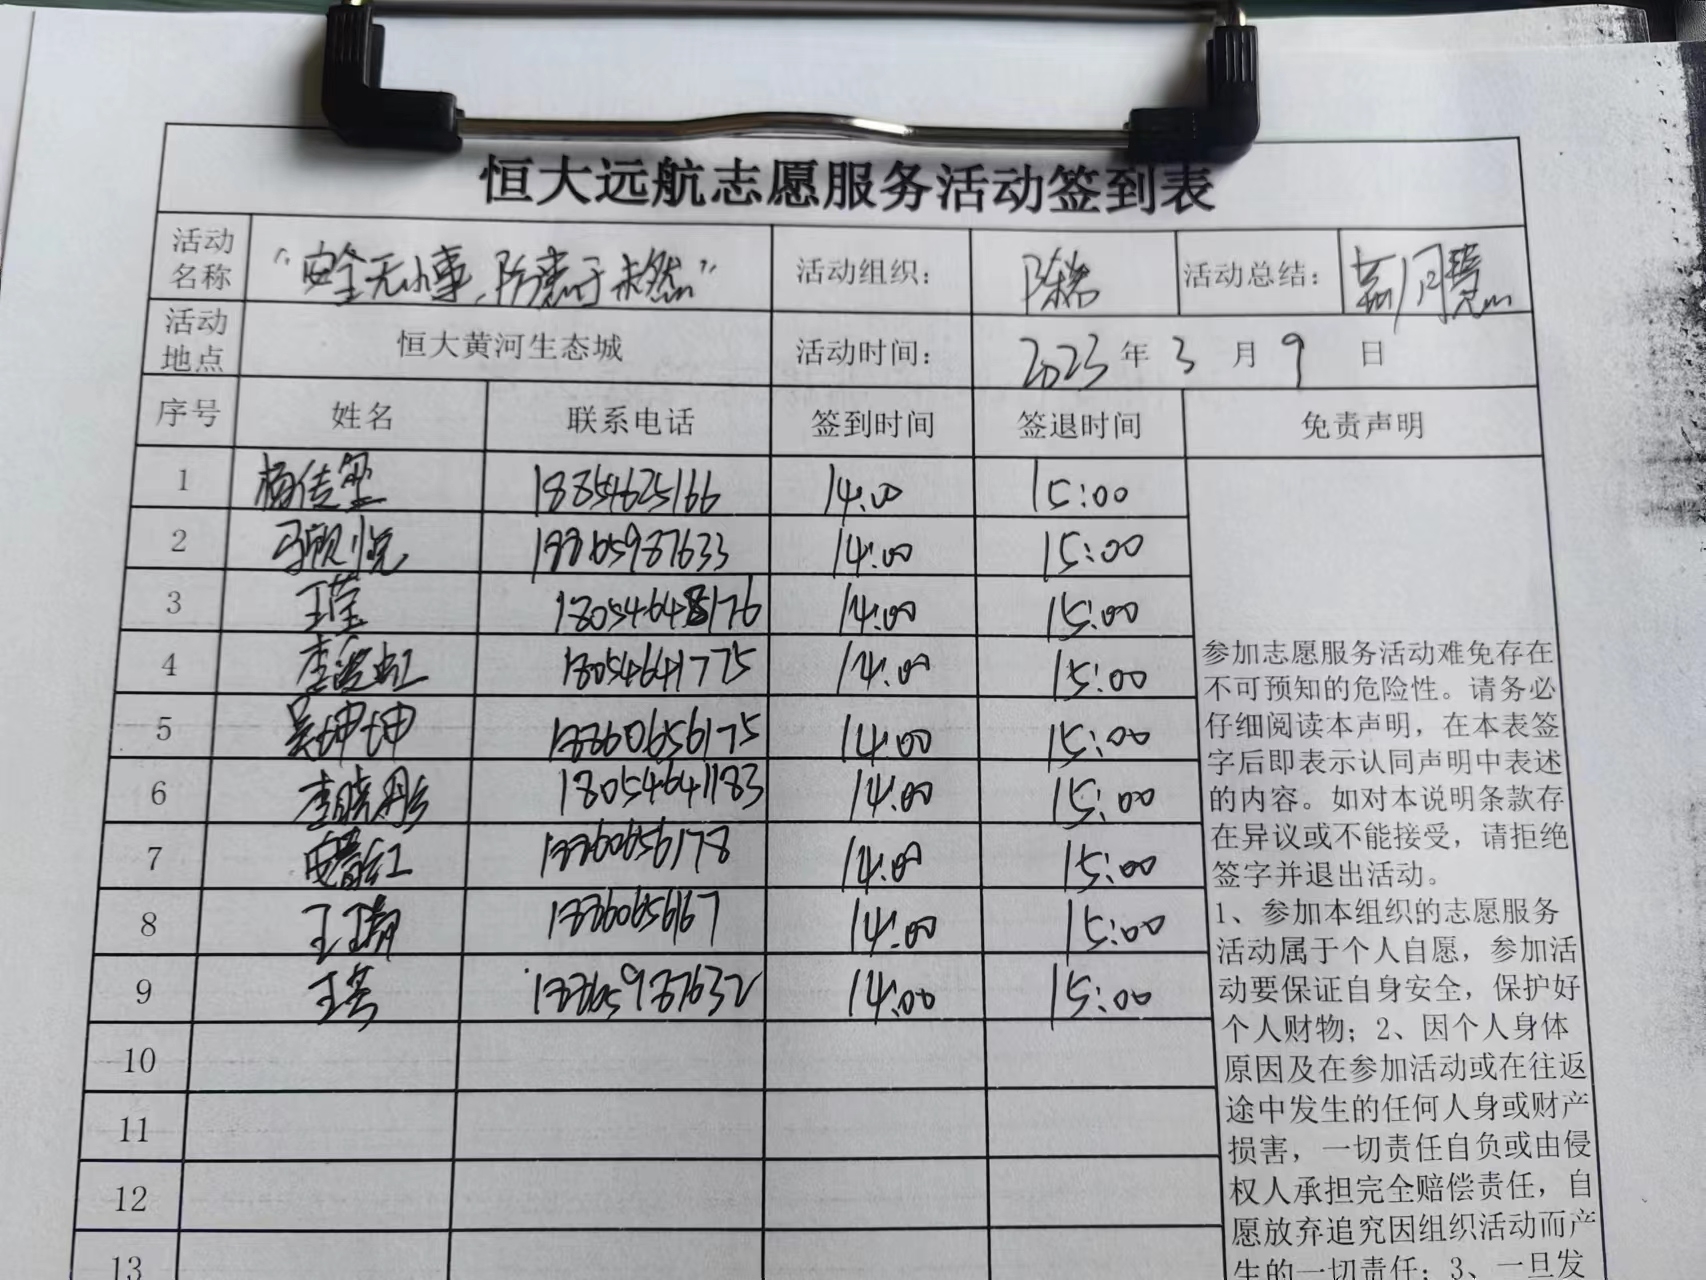 恒大远航志愿服务活动签到表
活动名称 “安全无小事，防患于未然” 活动组织： 活动总结：
活动地点 恒大黄河生态城 活动时间： 2023年3月9日
序号 姓名 联系电话 签到时间 签退时间 免责声明
1 杨传玺 18854625166 14:00 15:00
2 马顺悦 18865987633 14:00 15:00
3 王莹 18054648176 14:00 15:00
4 18054641775 14:00 15:00
5 吴坤坤 18860656175 14:00 15:00
6 李晓彤 18054641183 14:00 15:00
7 18860656178 14:00 15:00
8 18860656167 14:00 15:00
9 18865987632 14:00 15:00
10
11
12
13
参加志愿服务活动难免存在
不可预知的危险性。请务必
仔细阅读本声明，在本表签
字后即表示认同声明中表述
的内容。如对本说明条款存
在异议或不能接受，请拒绝
签字并退出活动。
1、参加本组织的志愿服务
活动属于个人自愿，参加活
动要保证自身安全，保护好
个人财物；2、因个人身体
原因及在参加活动或在往返
途中发生的任何人身或财产
损害，一切责任自负或由侵
权人承担完全赔偿责任，自
愿放弃追究因组织活动而产
生的一切责任；3、一旦发